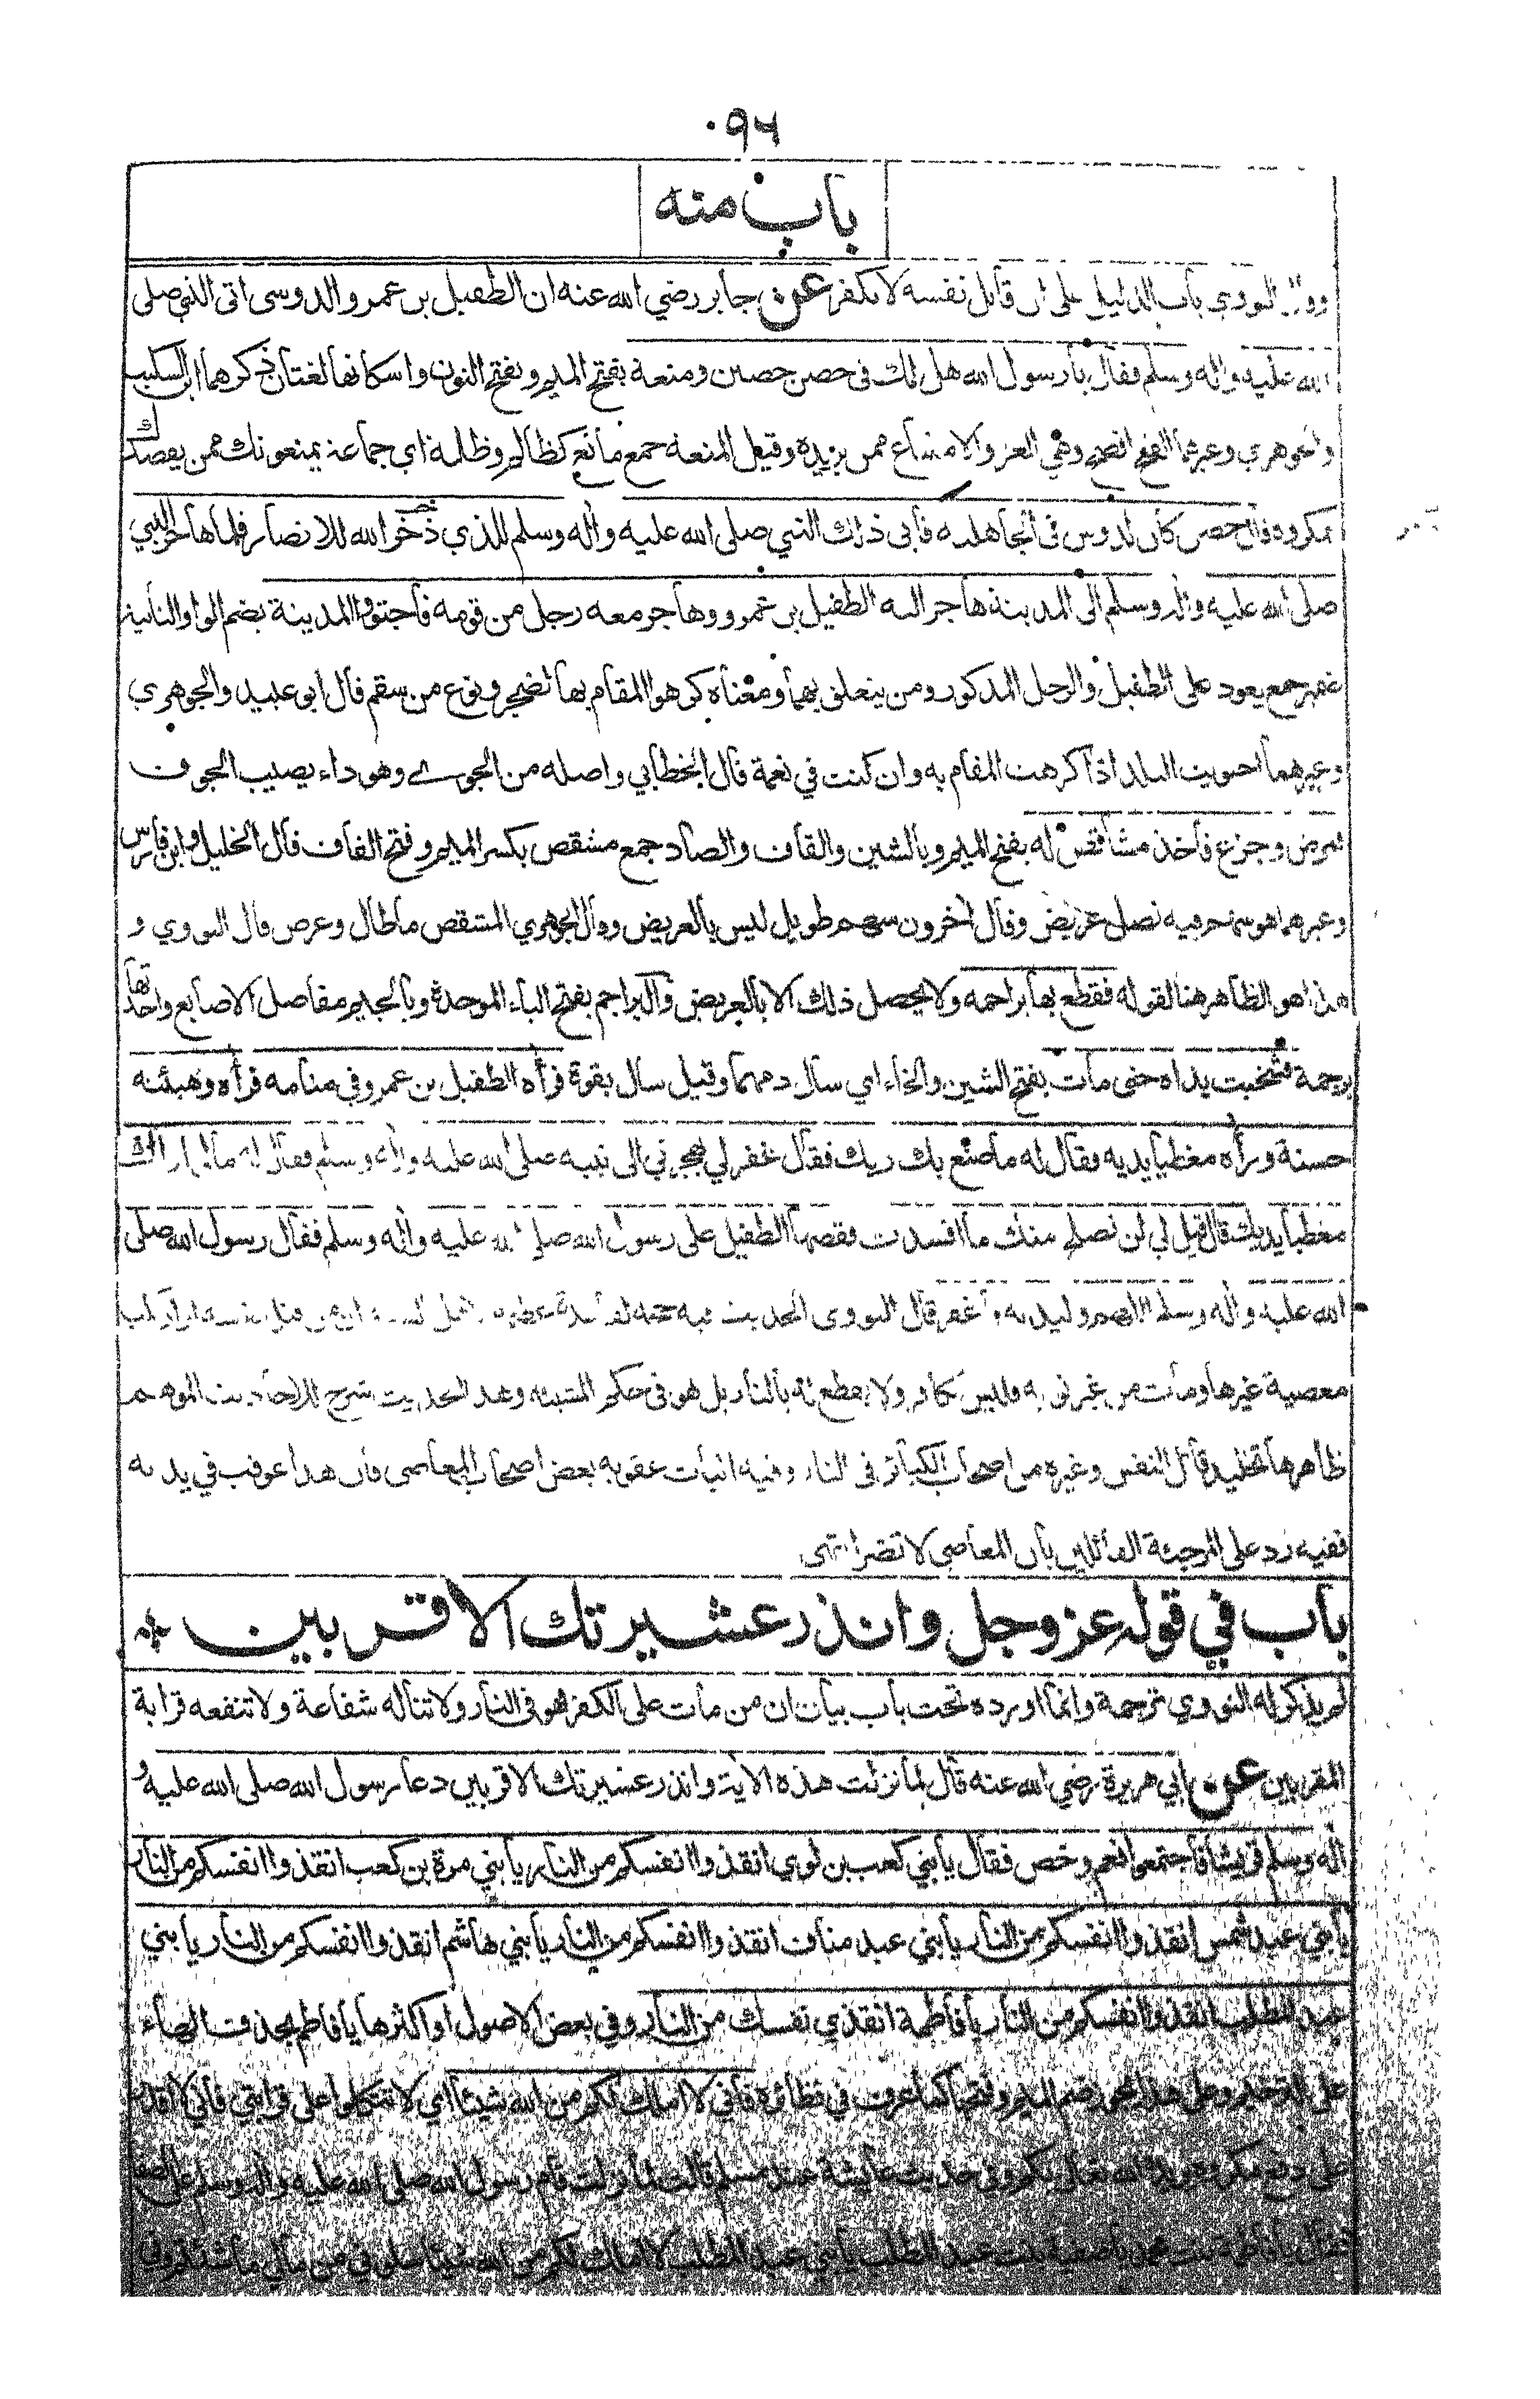 ٠٩٦
باب منه
النووي باب الدليل على ان قاتل نفسه لا يكفر عن جابر رضي الله عنه ان الطفيل بن عمرو الدوسي اتى النبي صلى
الله عليه واله وسلم فقال يا رسول الله هل لك في حصن حصين ومنعة بفتح الميم وبفتح النون واسكانها لغتان ذكرهما ابن السكيت
والجوهري وغيرهما الفتح افصح وهي العز والامتناع ممن يريده وقيل المنعة جمع مانع كظالم وظلمة اي جماعة يمنعونك ممن يقصدك
بمكروه قال حصن كان لدوس في الجاهلية فابى ذلك النبي صلى الله عليه واله وسلم للذي ذخر الله للانصار فلما هاجر النبي
صلى الله عليه واله وسلم الى المدينة هاجر اليه الطفيل بن عمرو وهاجر معه رجل من قومه فاجتووا المدينة بضم الواو الثانية
ضمير جمع يعود على الطفيل والرجل المذكور ومن يتعلق بهما ومعناه كرهوا المقام بها لضجر ونوع من سقم قال ابو عبيد والجوهري
وغيرهما اجتويت البلد اذا كرهت المقام به وان كنت في نعمة قال الخطابي واصله من الجوى وهو داء يصيب الجوف
فمرض وجزع فاخذ مشاقص له بفتح الميم وبالشين والقاف والصاد جمع مشقص بكسر الميم وفتح القاف قال الخليل وابن فارس
وغيرهما هو سهم فيه نصل عريض وقال اخرون سهم طويل ليس بالعريض وقال الجوهري المشقص ما طال وعرض قال النووي و
هذا هو الظاهر هنا لقوله فقطع بها براجمه ولا يحصل ذلك الا بالعريض والبراجم بفتح الباء الموحدة وبالجيم مفاصل الاصابع واحدتها
برجمة فشخبت يداه حتى مات بفتح الشين والخاء اي سال دمهما وقيل سال بقوة فرأه الطفيل بن عمرو في منامه فرأه وهيئته
حسنة ورأه مغطيا يديه فقال له ما صنع بك ربك فقال غفر لي بهجرتي الى نبيه صلى الله عليه واله وسلم فقال له مالي اراك
مغطيا يديك قال قيل لي لن نصلح منك ما افسدت فقصها الطفيل على رسول الله صلى الله عليه واله وسلم فقال رسول الله صلى
الله عليه واله وسلم اللهم وليديه فاغفر قال النووي الحديث فيه حجة لقاعدة عظيمة لاهل السنة ان من قتل نفسه او ارتكب
معصية غيرها ومات من غير توبة فليس بكافر ولا يقطع له بالنار بل هو في حكم المشيئة وهذا الحديث شرح للاحاديث الموهم
ظاهرها تخليد قاتل النفس وغيره من اصحاب الكبائر في النار وفيه اثبات عقوبة بعض اصحاب المعاصي فان هذا عوقب في يديه
ففيه رد على المرجئة القائلين بان المعاصي لا تضر انتهى
باب في قوله عز وجل وانذر عشيرتك الاقربين
لم يذكر له النووي ترجمة وانما اورده تحت باب بيان ان من مات على الكفر فهو في النار ولا تناله شفاعة ولا تنفعه قرابة
المقربين عن ابي هريرة رضي الله عنه قال لما نزلت هذه الاية وانذر عشيرتك الاقربين دعا رسول الله صلى الله عليه و
اله وسلم قريشا فاجتمعوا فعم وخص فقال يا بني كعب بن لوي انقذوا انفسكم من النار يا بني مرة بن كعب انقذوا انفسكم من النار
يا بني عبد شمس انقذوا انفسكم من النار يا بني عبد مناف انقذوا انفسكم من النار يا بني هاشم انقذوا انفسكم من النار يا بني
عبد المطلب انقذوا انفسكم من النار يا فاطمة انقذي نفسك من النار وفي بعض الاصول او اكثرها يا فاطم بحذف الهاء
على الترخيم وعلى هذا يجوز ضم الميم وفتحها كما عرف في نظائره فاني لا املك لكم من الله شيئا اي لا تتكلوا على قرابتي فاني لا اقدر
على دفع مكروه يريده الله تعالى بكم وفي حديث عايشة عند مسلم قالت لما نزلت قام رسول الله صلى الله عليه واله وسلم على الصفا
فقال يا فاطمة بنت محمد يا صفية بنت عبد المطلب يا بني عبد المطلب لا املك لكم من الله شيئا سلوني من مالي ما شئتم وفي